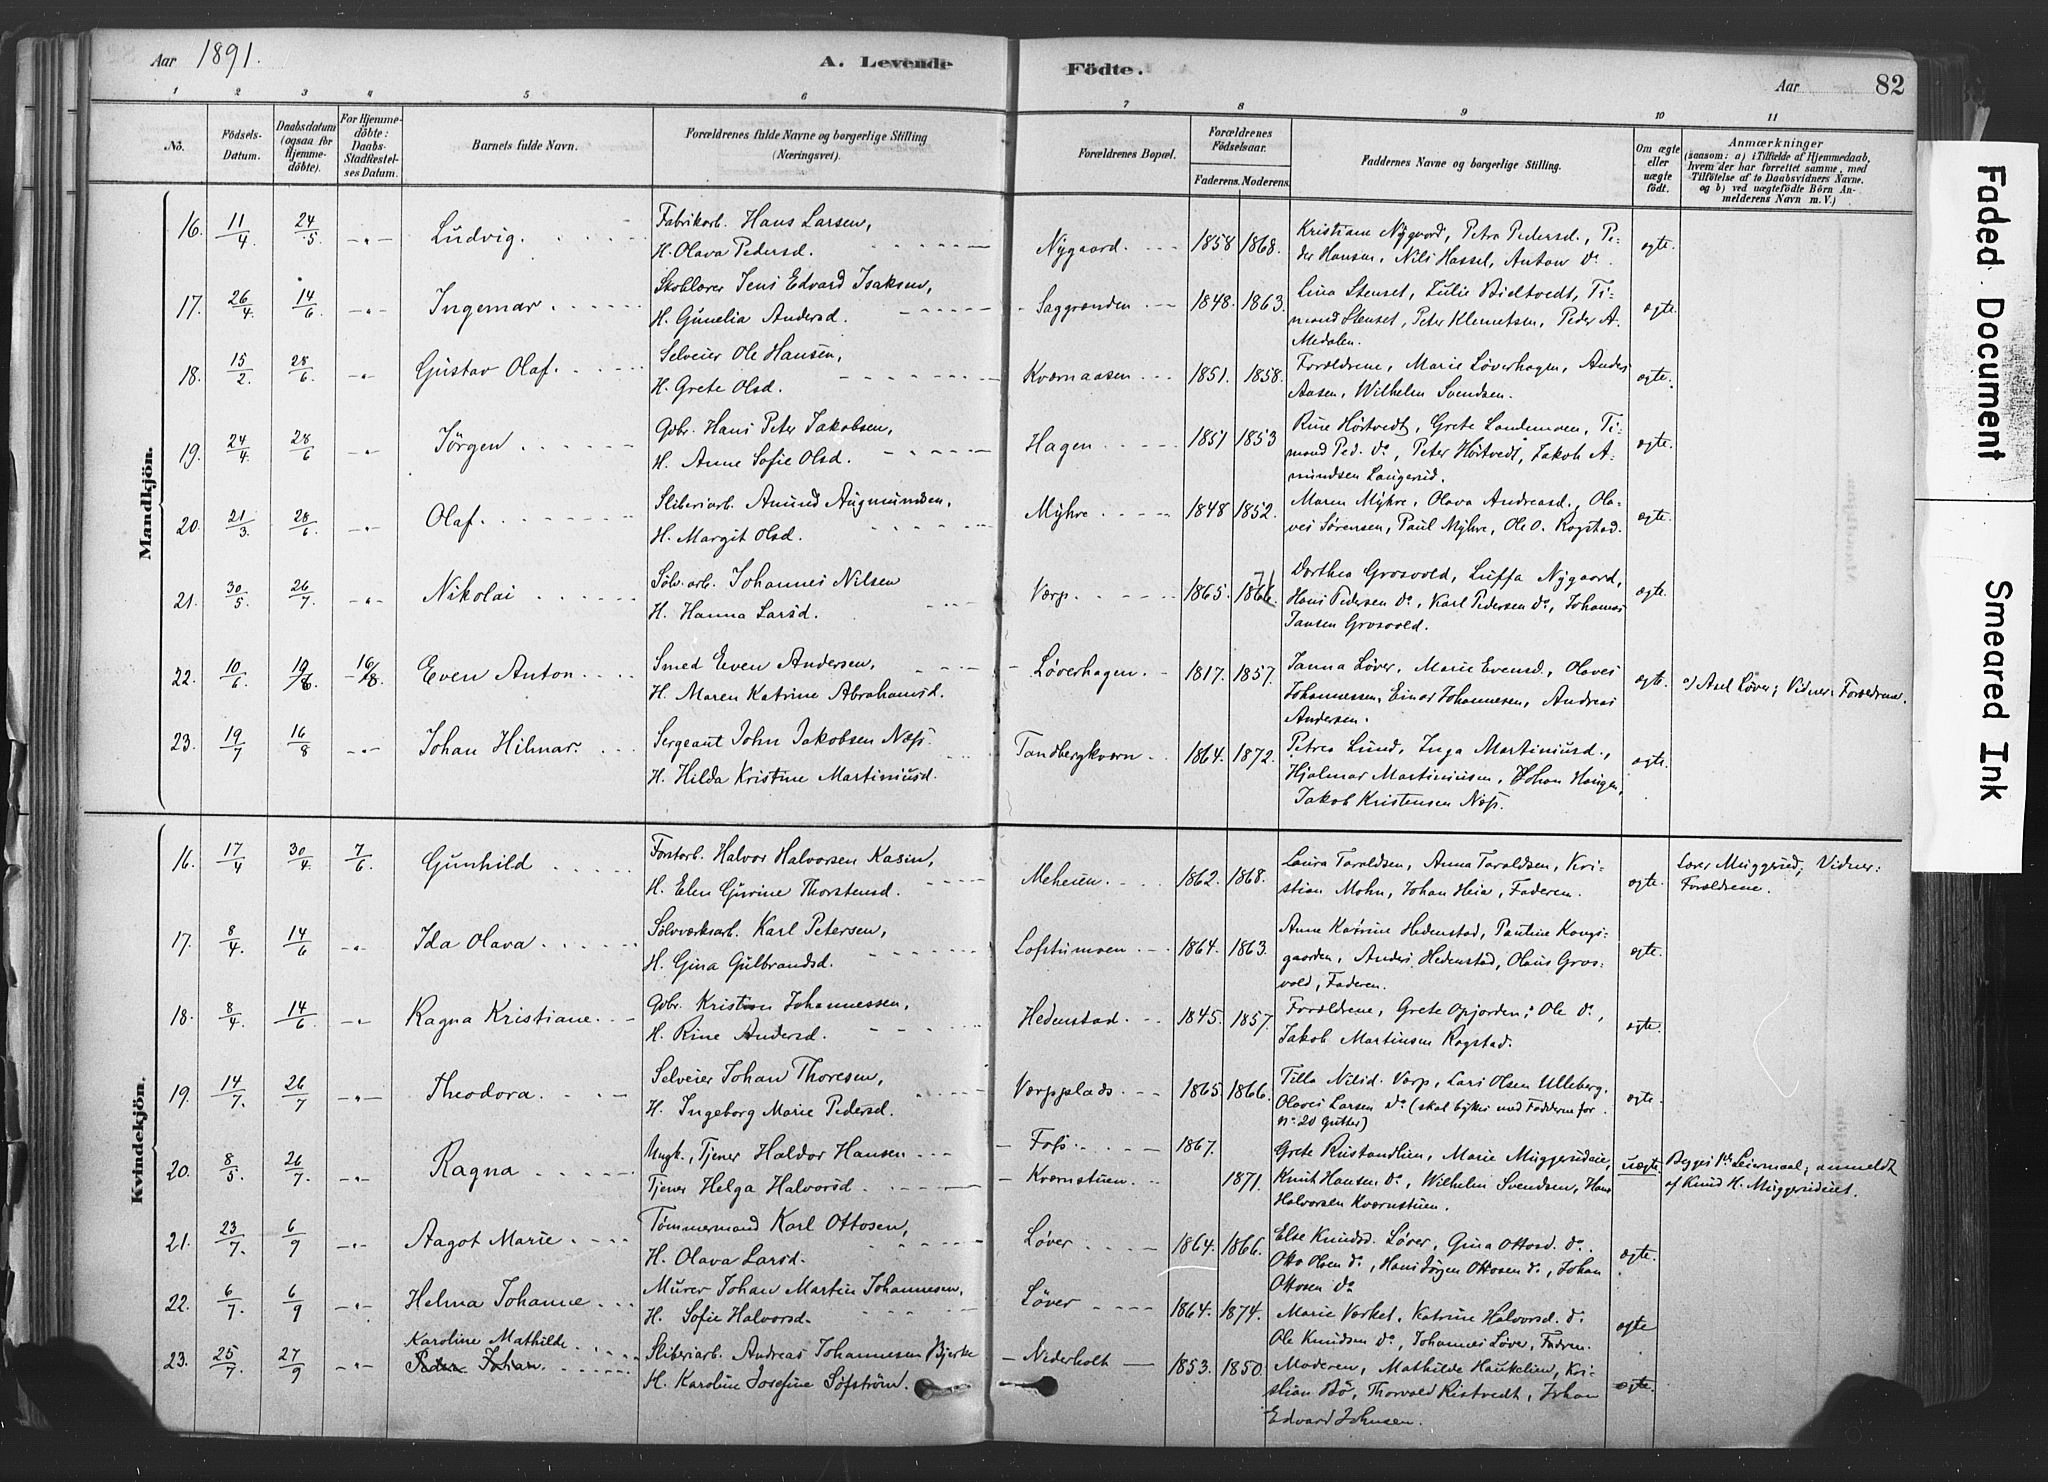 Aar 1891.
A. Levende Födte.
Aar 82
1 2 3 4 5 6 7 8 9 10 11
No.
Födsels-
Datum.
Daabsdatum
(ogsaa for
Hjemme-
döbte).
For Hjemme-
döbte:
Daabs-
Stadfæstel-
ses Datum.
Barnets fulde Navn.
Forældrenes fulde Navne og borgerlige Stilling
(Næringsvei).
Forældrenes Bopæl.
Forældrenes
Födselsaar.
Faderens. Moderens.
Faddernes Navne og borgerlige Stilling.
Om ægte
eller
uægte
födt.
Anmærkninger
(saasom: a) i Tilfælde af Hjemmedaab,
hvem der har forrettet samme, med
Tilföielse af to Daabsvidners Navne,
og b) ved uægtefödte Börn An-
melderens Navn m. V.)
Mandkjön.
16. 11/4 24/5 -"- Ludvig. Fabrikarb. Hans Larsen, Nygaard. 1858 1868. Kristiane Nygaard, Petra Pedersd., Pe- ægte.
H. Olava Pedersd. der Hansen, Nils Hassel, Anton do
17. 26/4 14/6 -"- Ingemar Skolelærer Jens Edvard Isaksen, Saggrænden 1848. 1863. Lina Stenset, Julie Bjeltvedt, Ti- ægte.
H. Gunelia Andersd. mand Stenset, Peter Klemetsen, Peder A.
Medalen.
18. 15/2 28/6 -"- Gustav Olaf. Selveier Ole Hansen, Kværnaasen 1851. 1858. Forældrene, Marie Løverhagen, Anders ægte.
H. Grete Olsd. Aasen, Wilhelm Svendsen.
19. 24/4 28/6 -"- Jörgen Gbr. Hans Peter Jakobsen, Hagen 1851 1853 Rine Hörtvedt, Grete Landemoen, Ti- ægte.
H. Anne Sofie Olsd. mand Ped. do, Peter Hörtvedt, Jakob A-
mundsen Langerud.
20. 21/3 28/6 -"- Olaf. Sliberiarb. Amund Augmundsen, Myhre 1848 1852. Maren Myhre, Olava Andreasd., Ola- ægte.
H. Margit Olsd. ves Sørensen, Paul Myhre, Ole O. Rogstad.
21. 30/5 26/7 -"- Nikolai Sølv.arb. Johannes Nilsen Værp. 1865. 1866. 71 Dorthea Grosvold, Luffa Nygaard, ægte.
H. Hanna Larsd. Hans Pedersen do, Karl Pedersen do, Johannes
Jansen Grosvold.
22. 10/6 19/6 16/8 Even Anton Smed Even Andersen, Løverhagen 1817. 1857. Janna Løver, Marie Evensd., Olaves ægte. a/ Axel Løver; Vidner: Forældrene.
H. Maren Katrine Abrahamsd. Johannessen, Einar Johannesen, Andreas
Andersen.
23. 19/7 16/8 -"- Johan Hilmar. Sergeant John Jakobsen Næss. Tandbergkværn 1864. 1872. Petrea Lund, Inga Martiniusd., ægte.
H. Hilda Kristine Martiniusd. Hjalmar Martiniusen, Johan Haugen,
Jakob Kristensen Næss.
Kvindekjön.
16. 17/4 30/4 7/6 Gunhild Forstarb. Halvor Halvorsen Kasin, Meheien 1862. 1868. Laura Taraldsen, Anna Taraldsen, Kri- ægte. Lærer Muggerud; Vidner:
H. Elen Gurine Thorstensd. stian Mohn, Johan Heia, Faderen. Forældrene.
17. 8/4 14/6 -"- Ida Olava Sølvværksarb. Karl Petersen, Loftsumoen 1864. 1863. Anne Katrine Hedenstad, Pauline Kongs- ægte.
H. Gina Gulbrandsd. gaarden, Anders Hedenstad, Olaus Gros-
vold, Faderen.
18. 8/4 14/6 -"- Ragna Kristiane Gbr. Kristen Johannessen, Hedenstad 1845. 1857. Forældrene, Grete Opjorden, Ole do, ægte.
H. Rine Andersd. Jakob Martinsen Rogstad.
19. 14/7 26/7 -"- Theodora Selveier Johan Thoresen, Værpsplads 1865. 1866. Tilla Nilsd. Værp, Lars Olsen Ulleberg, ægte.
H. Ingeborg Marie Pedersd. Olaves Larsen do (skal byttes med Fadderne for
No 20 Gutter)
20. 8/5 26/7 -"- Ragna Ungk., Tjener Haldor Hansen Foss 1867. Grete Ristandlien, Marie Muggerudeie, uægte. Begges 1ste Leiermaal; anmeldt
Tjener Helga Halvorsd. Kværnstuen. 1871. Knut Hansen do, Wilhelm Svendsen, Hans af Knud H. Muggerudeiet.
Halvorsen Kværnstuen.
21. 23/7 6/9 -"- Aagot Marie Tømmermand Karl Ottosen, Løver 1864. 1866. Else Knudsd. Løver, Gina Ottosd. do. ægte.
H. Olava Larsd. Otto Olsen do, Hans Jørgen Ottosen do, Johan
Ottosen do
22. 6/7 6/9 -"- Helma Johanne Murer Johan Martin Johannesen, Løver 1864. 1874. Marie Verket, Katrine Halvorsd. do ægte
H. Sofie Halvorsd. Ole Knudsen do, Johannes Løver, Faderen.
23. 25/7 27/9 -"- Karoline Mathilde Peder Johan Sliberiarb. Andreas Johannesen Bjerke Nederholt 1853. 1850. Moderen, Mathilde Haukelien, Kri- ægte.
H. Karoline Josefine Söfström. stian Bö, Thorvald Ristvedt, Johan
Edvard Johnsen.
Faded Document
Smeared Ink